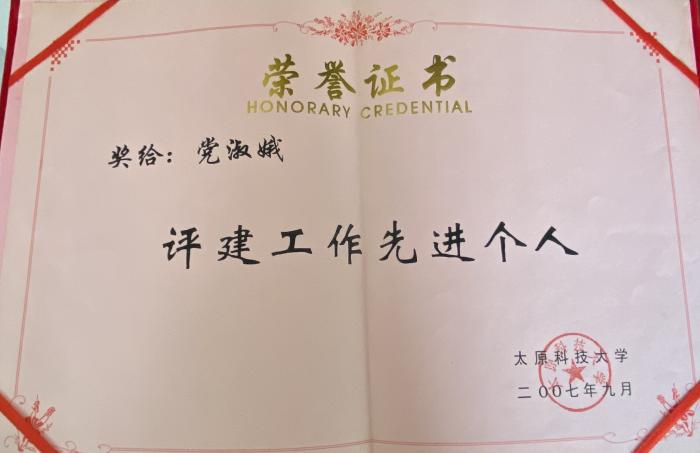 荣誉证书
HONORARY CREDENTIAL
奖给：党淑娥
评建工作先进个人
太原科技大学
二〇〇七年九月
太原科技大学